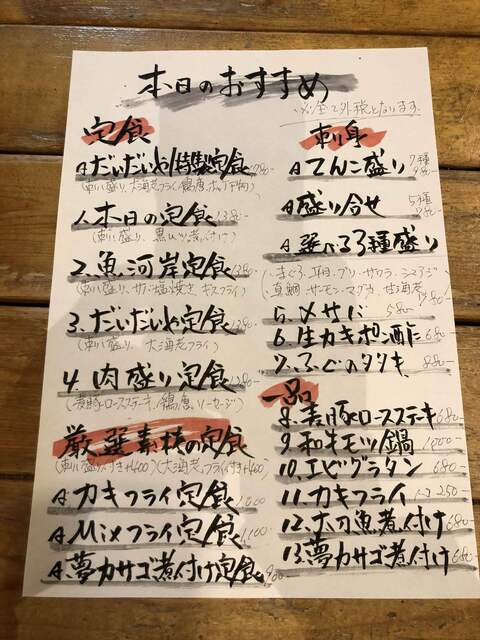 本日のおすすめ
※全て外税となります
定食
☆だいだいや特製定食 1780-
(刺し盛り、大海老フライ
1.本日の定食 1380-
(刺し盛り、黒ムツ煮付け)
2.魚河岸定食 1380-
(刺し盛り、サバ塩焼き、キスフライ)
3.だいだいや定食 1280-
(刺し盛り、大海老フライ)
4.肉盛り定食 1280-
(麦豚ロースステーキ/鶏唐、ソーセージ)
厳選素材の定食
(刺し盛り付き+400)(大海老フライ付き+400)
☆カキフライ定食 1,000
☆Mixフライ定食 1,100
☆夢カサゴ煮付け定食 980-
刺身
☆てんこ盛り 7種 980-
☆盛り合せ 5種
☆選べる3種盛り
真鯛、サーモン、マグカ、甘海老
5.〆サバ 580-
6.生カキポン酢 680-
7.ふぐのタタキ 880-
一品
8.麦豚ロースステーキ 680-
9.和牛モツ鍋 1000-
10.エビグラタン 680-
11.カキフライ 1コ250-
12.太刀魚煮付け 680-
13.夢カサゴ煮付け 680-